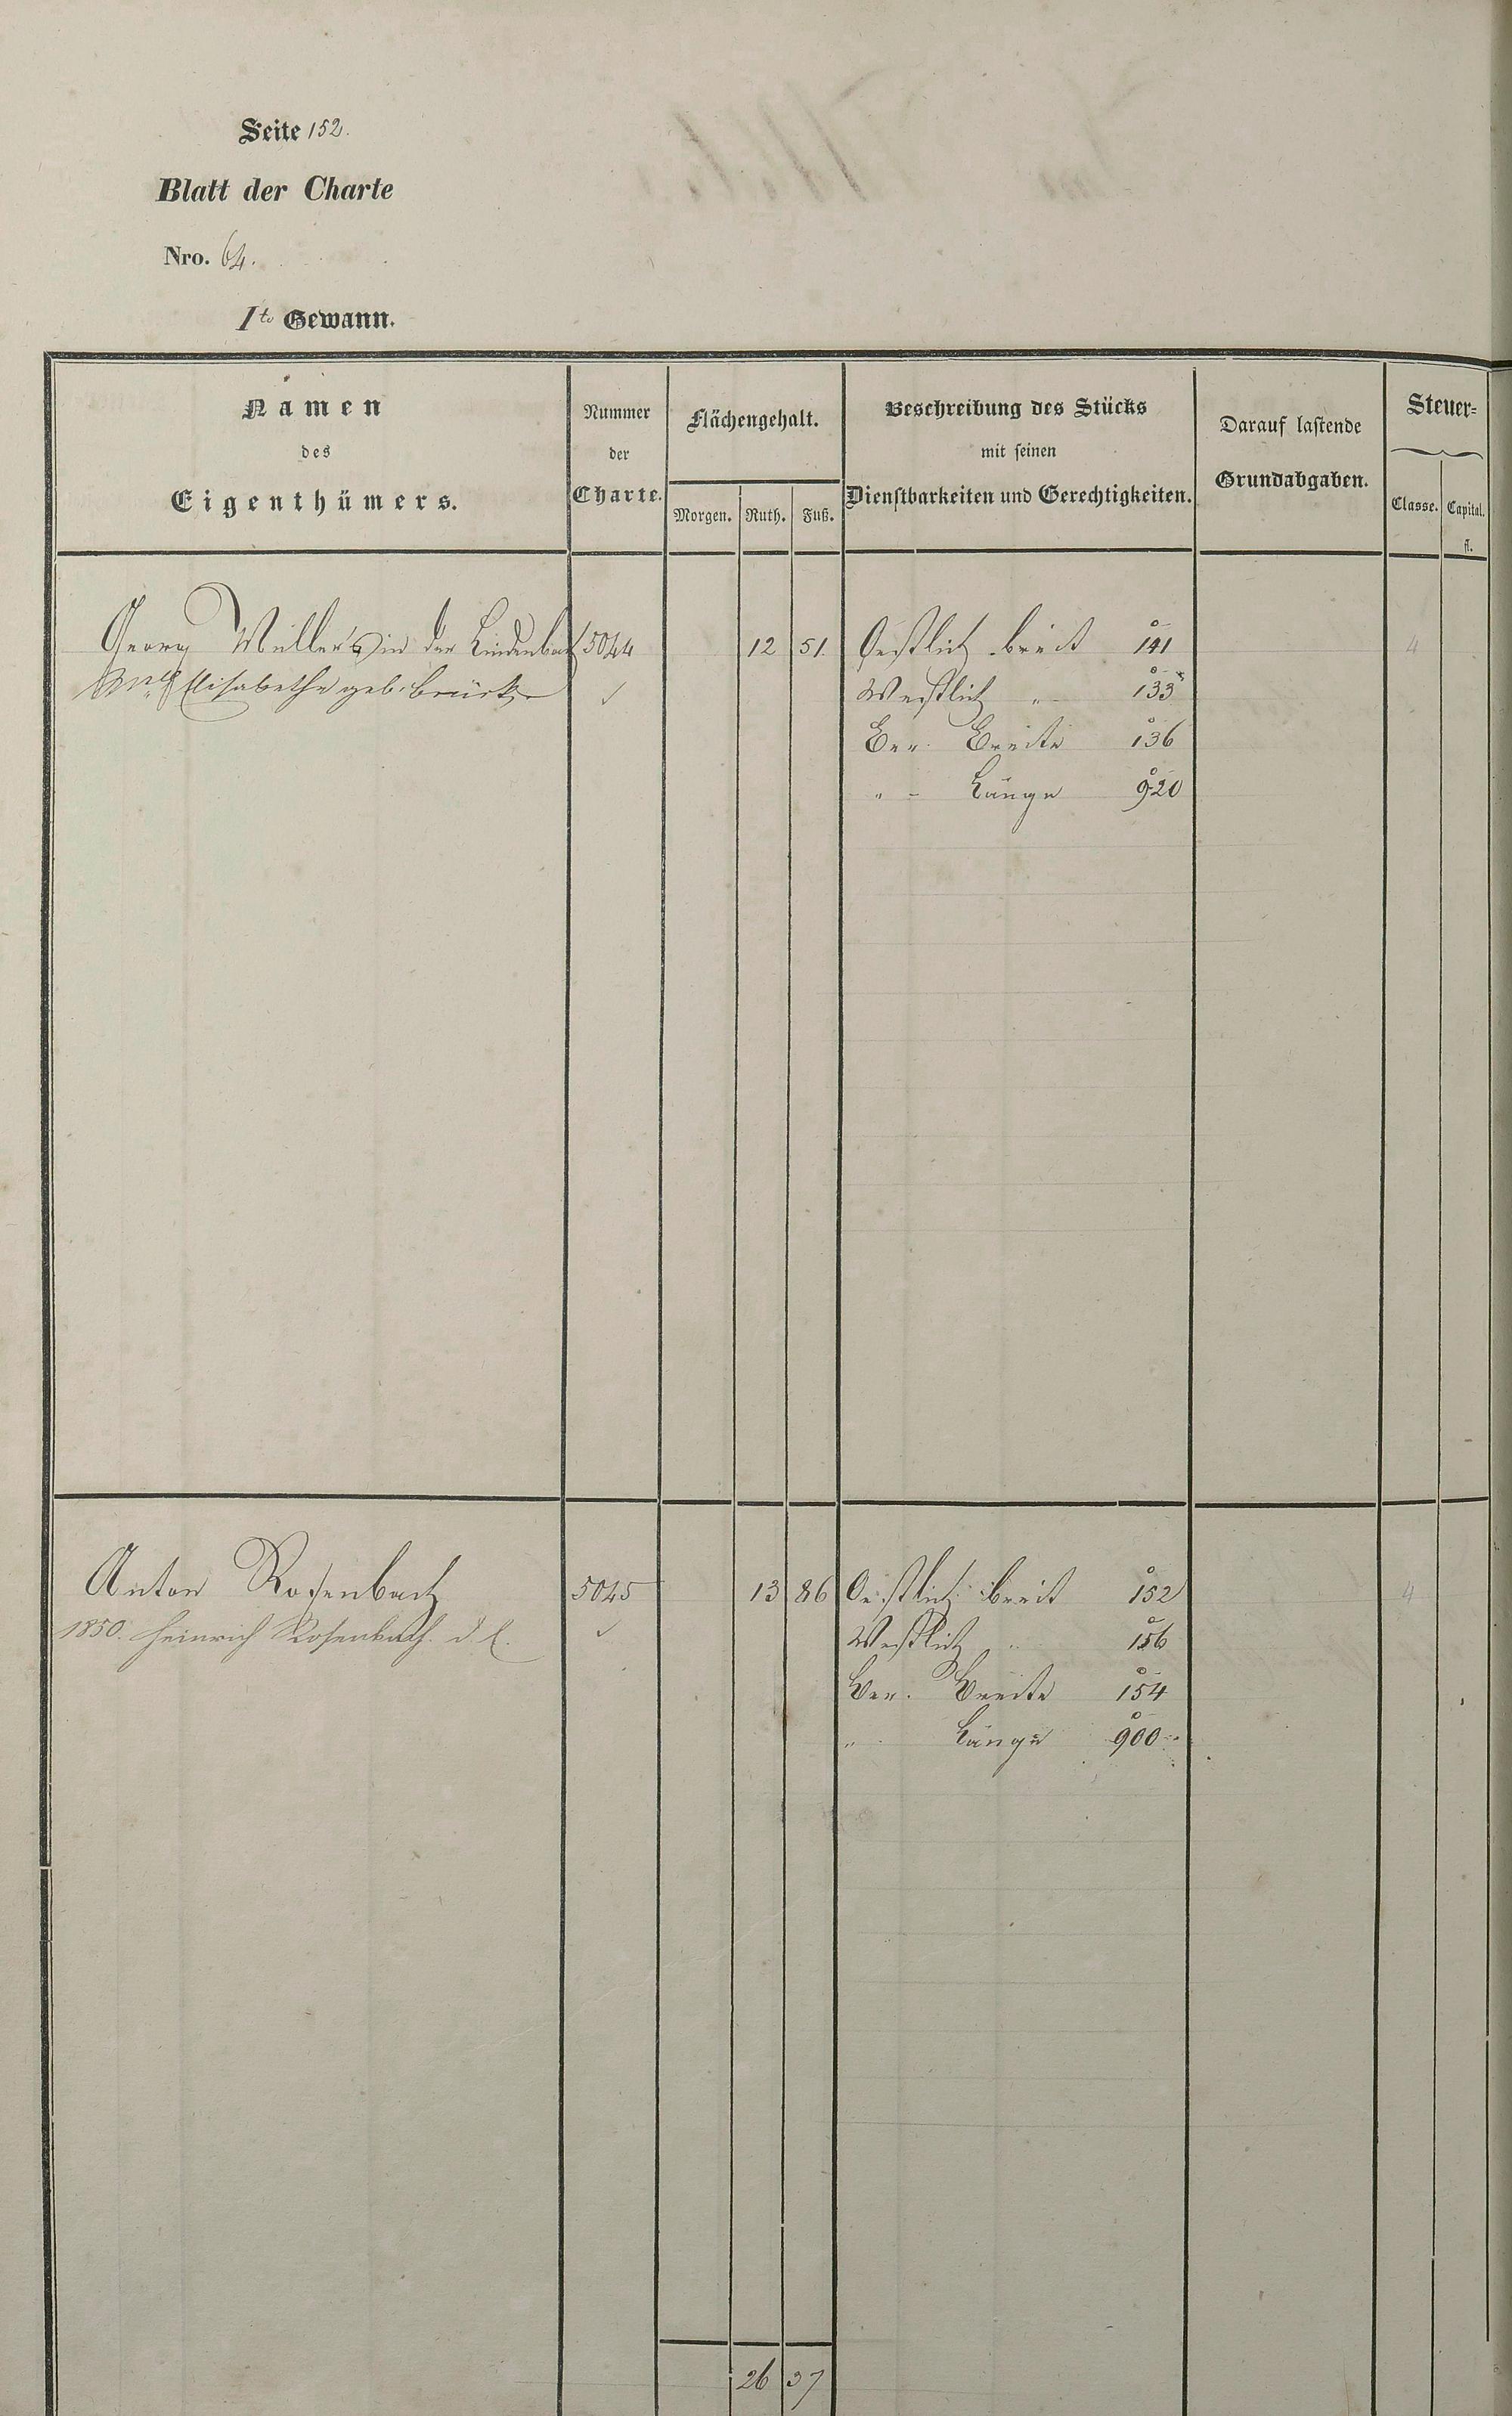 Seite 152.
Blatt der Charte
Nro. 64.
1te Gewann.
Namen
des
Eigenthümers.
Nummer
der
Charte.
Flächengehalt.
Morgen. Ruth. Fuß.
Beschreibung des Stücks
mit seinen
Dienstbarkeiten und Gerechtigkeiten.
Darauf lastende
Grundabgaben.
Steuer-
Classe. Capital.
fl.
Georg Müller in der Lindenbach 5044 12 51. Oestlich breit 141 4
Elisabethe geb. Westlich " 133
Ber. Breite 136
" - Länge 920
Anton Rosenbach 5045 13 86 Oestlich breit 152 4
1850. Heinrich Rosenbach. d. l. Westlich " 156
Ber. Breite 154
" Länge 900
26 37